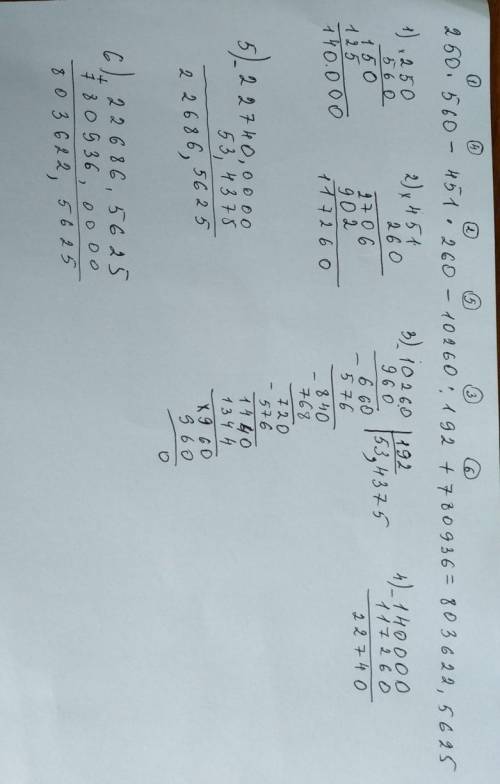 ① ④ ② ⑤ ③ ⑥
250 · 560 − 451 · 260 − 10260 : 192 + 780936 = 803622,5625
1) × 250
560
150
125
140.000
2) × 451
260
2706
902
117260
3) − 10260 | 192
960 | 53,4375
− 660
576
− 840
768
− 720
576
1440
1344
× 960
960
0
4) − 140000
117260
22740
5) − 22740,0000
53,4375
22686,5625
6) + 22686,5625
780936,0000
803622,5625